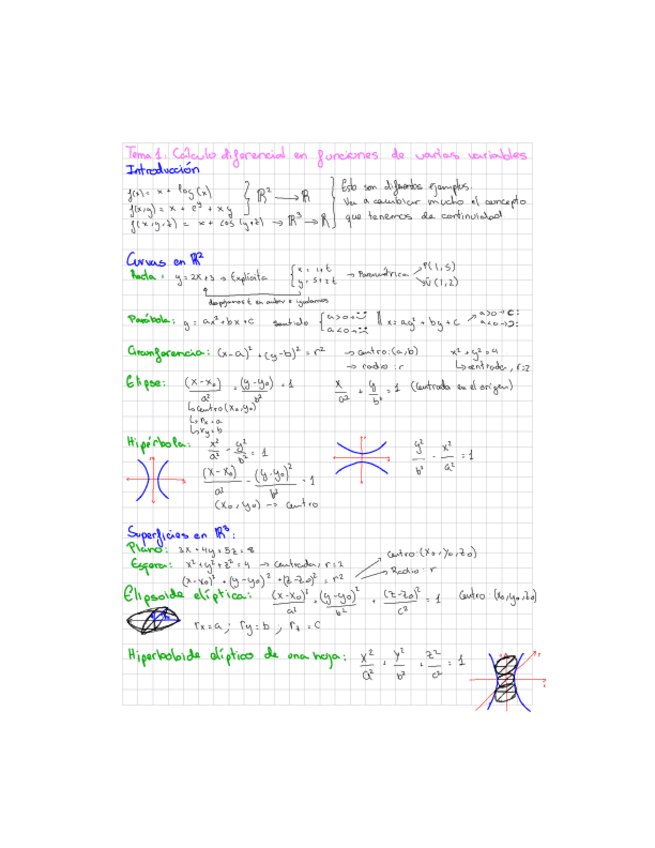 Tema 1: Cálculo diferencial en funciones de varias variables
Introducción
f(x) = x + log(x)
f(x,y) = x + e^y + xy
ℝ² → ℝ
f(x,y,z) = x + cos(y+z) → ℝ³ → ℝ
Esto son diferentes ejemplos.
Va a cambiar mucho el concepto
que tenemos de continuidad
Curvas en ℝ²
Recta: y = 2x+3 → Explícita { x = 1+t → Paramétrica → P(1,5)
y = 5+2t → v(1,2)
despejamos t en ambas e igualamos
Parábola: y = ax²+bx+c sentido { a>0→ || x = ay²+by+c → a>0→
a<0→ a<0→
Circunferencia: (x-a)² + (y-b)² = r² → centro: (a,b) x²+y²=4
→ radio: r ↳ centrada, r=2
Elipse: (x-x₀)/a² + (y-y₀)/b² = 1 x/a² + y/b² = 1 (Centrada en el origen)
↳ Centro (x₀,y₀)
↳ rx = a
↳ ry = b
Hipérbola: x²/a² - y²/b² = 1 y²/b² - x²/a² = 1
(x-x₀)/a² - (y-y₀)²/b² = 1
(x₀,y₀) → Centro
Superficies en ℝ³:
Plano: 3x + 4y + 5z = 8
Esfera: x²+y²+z² = 4 → Centrada, r=2
(x-x₀)² + (y-y₀)² + (z-z₀)² = r² → Centro: (x₀,y₀,z₀)
→ Radio: r
Elipsoide elíptica: (x-x₀)²/a² + (y-y₀)²/b² + (z-z₀)²/c² = 1 Centro: (x₀,y₀,z₀)
rx=a; ry=b; rz=c
Hiperboloide elíptico de una hoja: x²/a² + y²/b² + z²/c² = 1